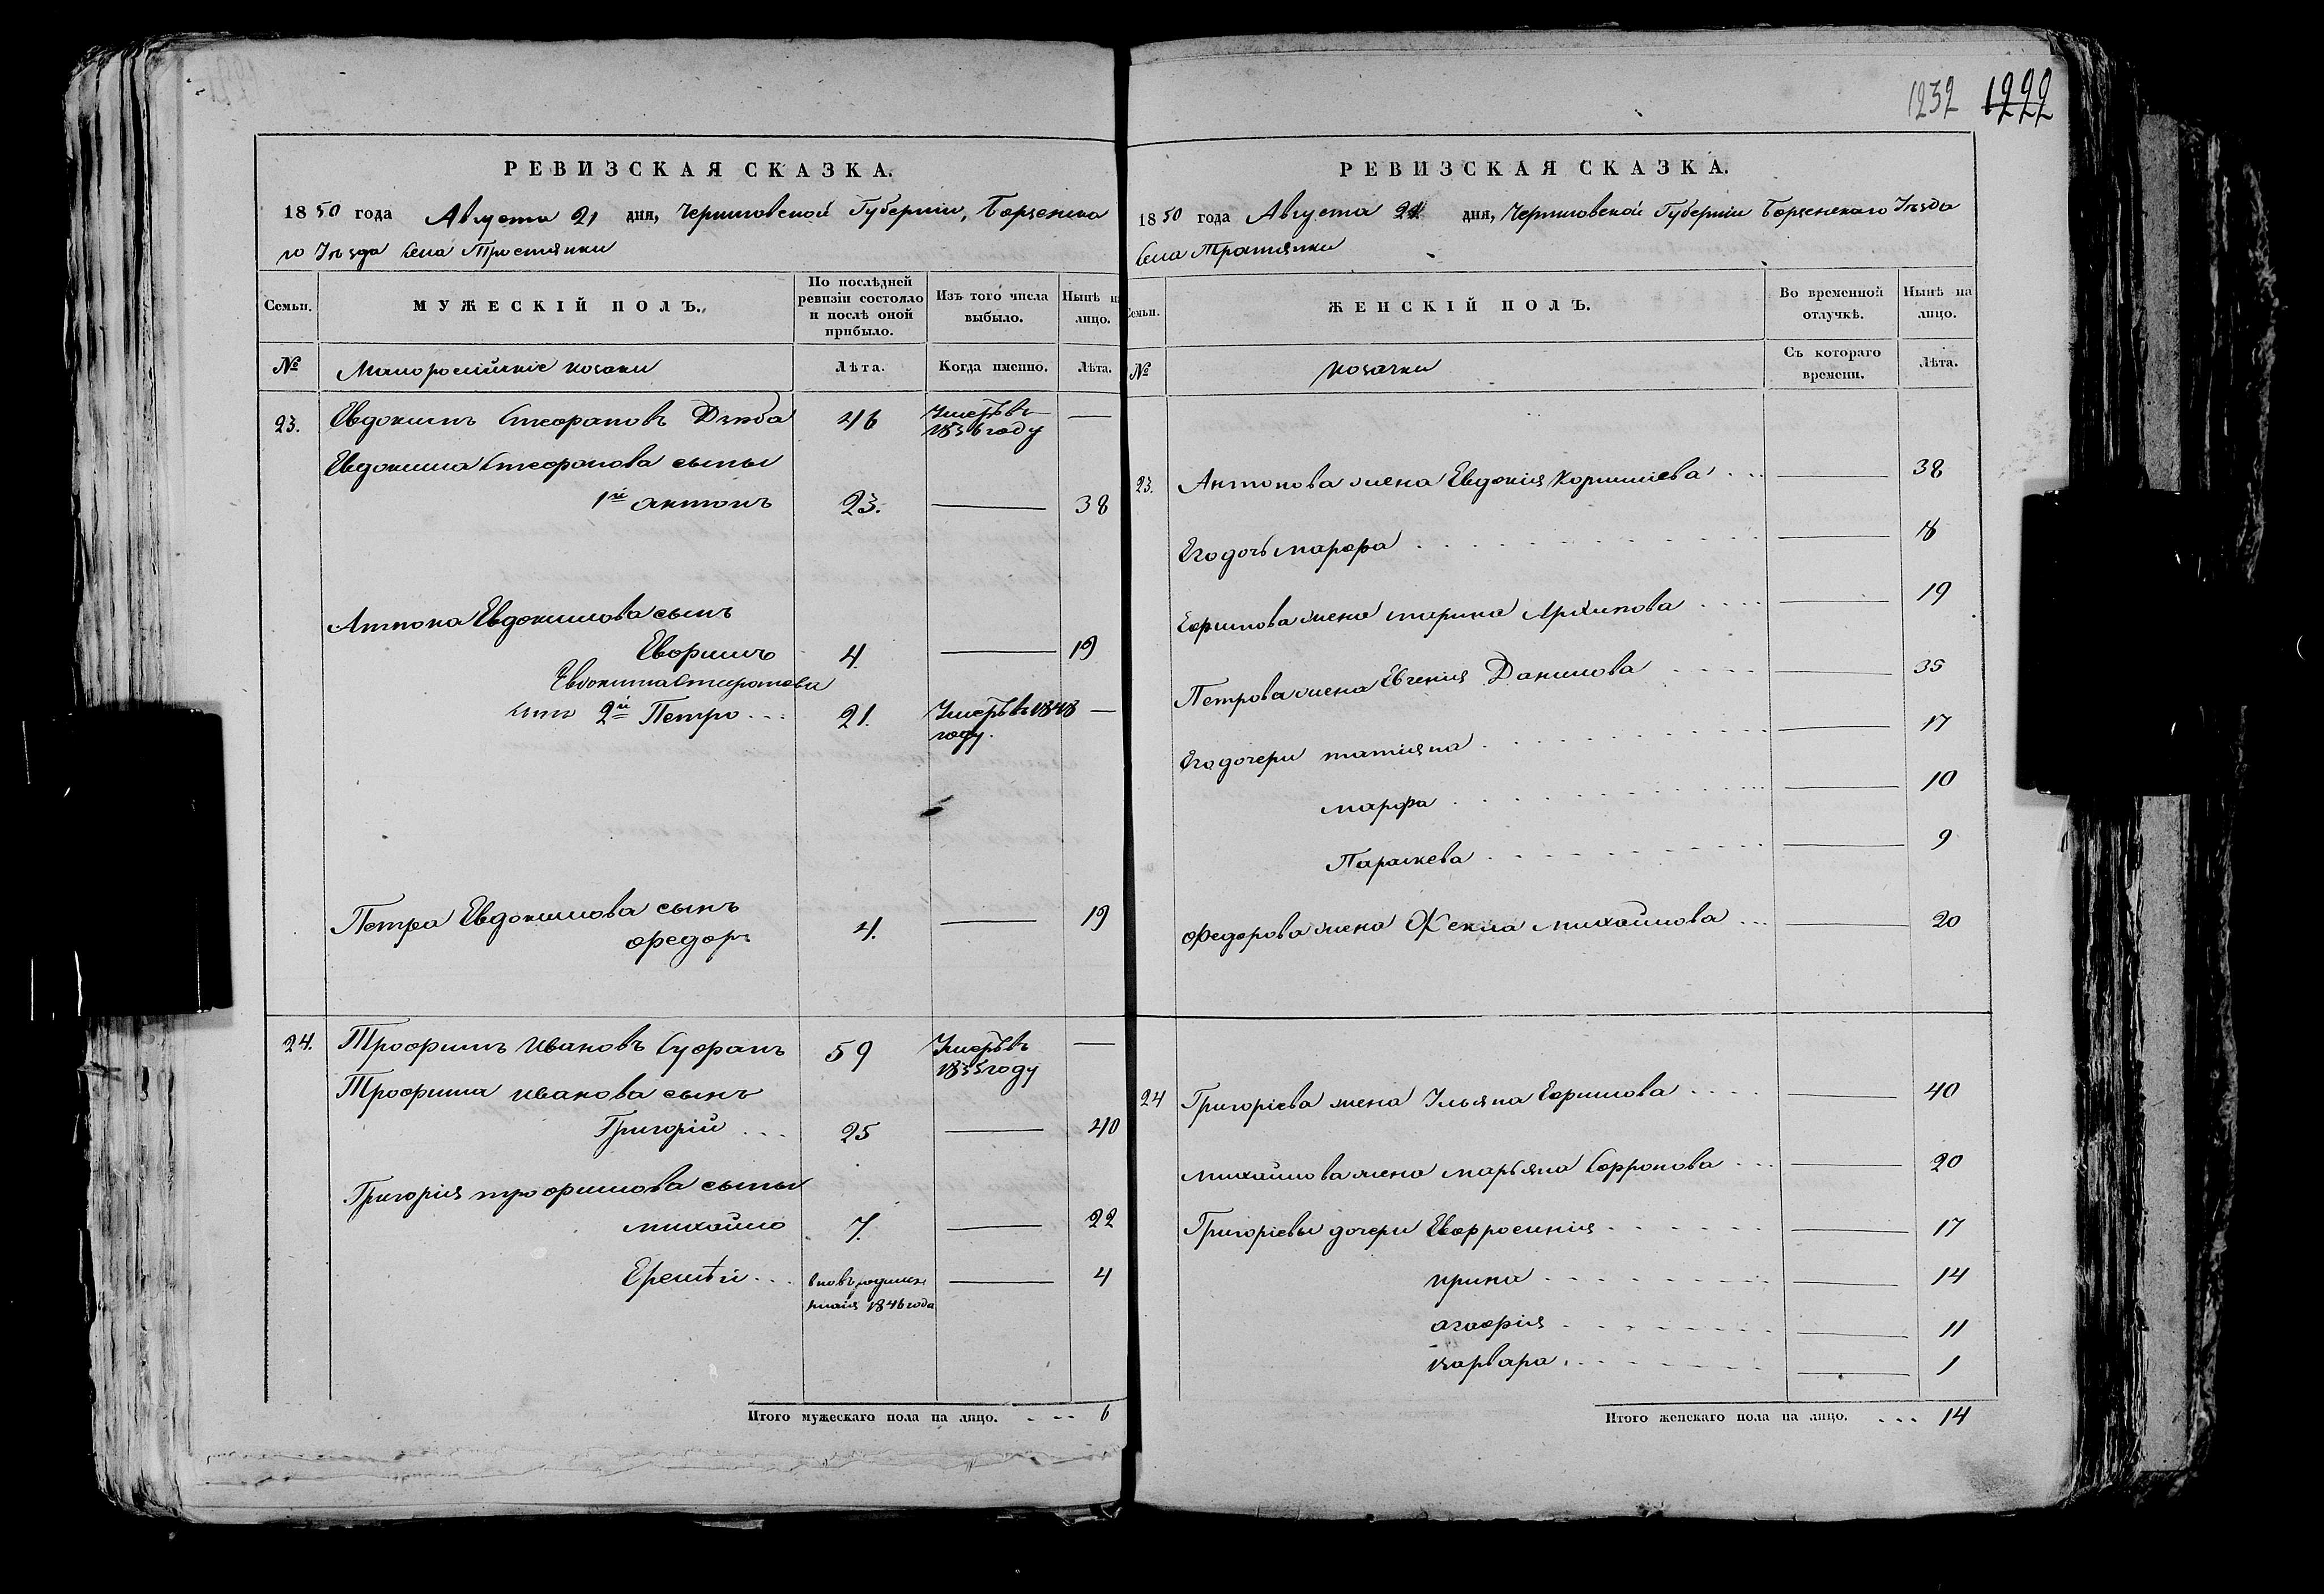 1232 1222
РЕВИЗСКАЯ СКАЗКА.
1850 года Августа 21 дня, Черниговской Губернии, Борзенска
го Уѣзда Села Тростянки
Семьи.
МУЖЕСКІЙ ПОЛЪ.
По послѣдней ревизіи состояло и послѣ оной прибыло.
Изъ того числа выбыло.
Нынѣ на лицо.
№
Малоросійскіе козаки
Лѣта.
Когда именно.
Лѣта.
23. Евдокимъ Стефановъ 46 Умеръ въ 1836 году —
Евдокима Стефанова сыны
1й Антонъ 23. — 38
Антона Евдокимова сынъ
Евфимъ 4. — 19
Евдокима Стефанова
сынъ 2й Петро 21. Умеръ въ 1848 году. —
Петра Евдокимова сынъ
Федоръ 4. — 19
24. Трофимъ Ивановъ 59 Умеръ въ 1835 году —
Трофима Иванова сынъ
Григорій 25 — 40
Григорія Трофимова сыны
Михайло 7. — 22
Еремѣй вновь рожден 1846 года — 4
Итого мужескаго пола на лицо. 6
РЕВИЗСКАЯ СКАЗКА.
1850 года Августа 21 дня, Черниговской Губерніи Борзенскаго Уѣзда
Села Тростянки
Семьи.
ЖЕНСКІЙ ПОЛЪ.
Во временной отлучкѣ.
Нынѣ на лицо.
№
козачки
Съ котораго времени.
Лѣта.
23. Антонова жена Евдокія Корниліева — 38
Его дочь Марфа — 18
Ефимова жена Марина Архипова — 19
Петрова жена Евгенія Данилова — 35
Его дочери Татіяна — 17
Марфа — 10
Параскева — 9
Федорова жена Фекла Михайлова — 20
24 Григоріева жена Ульяна Ефимова — 40
Михайлова жена Марьяна Софронова — 20
Григоріевы дочери Евфросинія — 17
Ирина — 14
Агафія — 11
Варвара — 1
Итого женскаго пола на лицо. 14